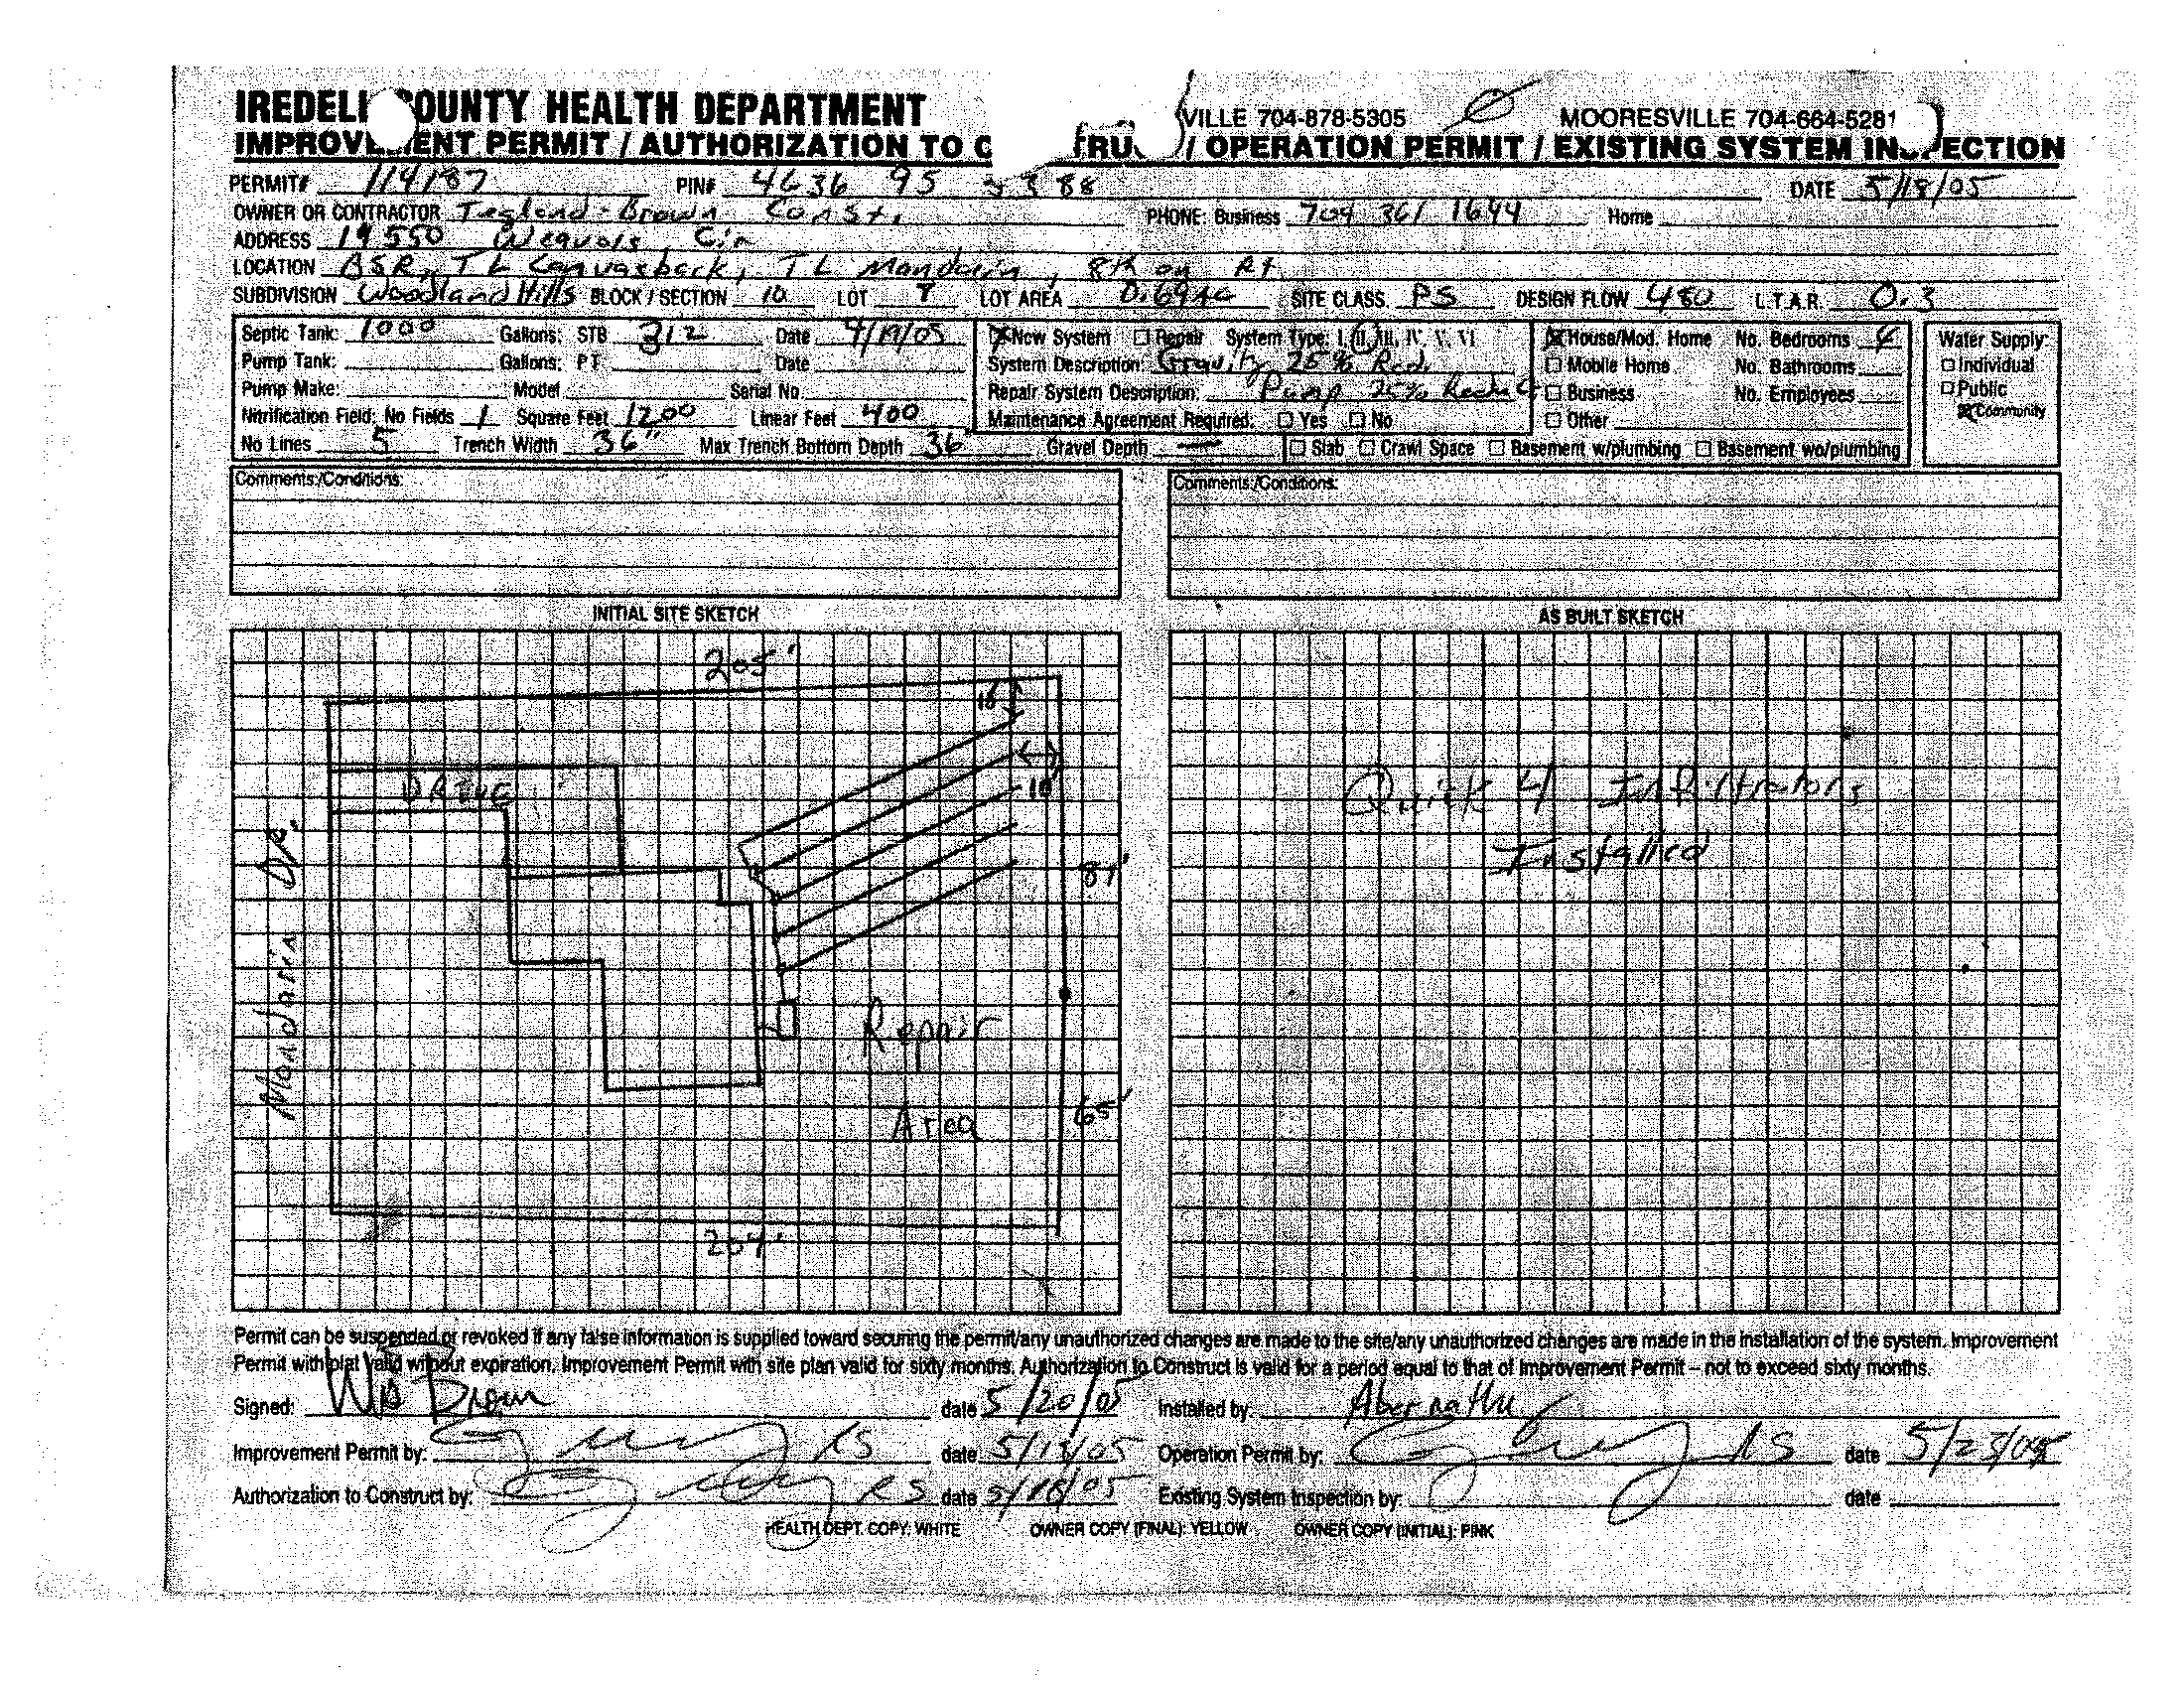 IREDELL COUNTY HEALTH DEPARTMENT VILLE 704-878-5305 MOORESVILLE 704-664-5281
IMPROVEMENT PERMIT / AUTHORIZATION TO C TRU / OPERATION PERMIT / EXISTING SYSTEM INSPECTION
PERMIT# 114187 PIN# 4636 95 3388 DATE 5/18/05
OWNER OR CONTRACTOR Tegland-Brown Const. PHONE: Business 704 361 1644 Home
ADDRESS 19550 Cir
LOCATION BSR, TL Canvasback, TL Mandarin, on Rt
SUBDIVISION Woodland Hills BLOCK / SECTION 10 LOT LOT AREA 0.69Ac SITE CLASS. PS DESIGN FLOW 480 L.T.A.R. 0.3
Septic Tank: 1000 Gallons: STB 312 Date 4/19/05 New System Repair System Type: I, II, III, IV, V, VI House/Mod. Home No. Bedrooms 4 Water Supply:
Pump Tank: Gallons: PT Date System Description: Gravity 25% Red. Mobile Home No. Bathrooms Individual
Pump Make: Model Serial No. Repair System Description: Pump 25% Business No. Employees Public
Nitrification Field: No Fields 1 Square Feet 1200 Linear Feet 400 Maintenance Agreement Required: Yes No Other Community
No Lines 5 Trench Width 36" Max Trench Bottom Depth 36" Gravel Depth — Slab Crawl Space Basement w/plumbing Basement wo/plumbing
Comments:/Conditions: Comments:/Conditions:
INITIAL SITE SKETCH AS BUILT SKETCH
205'
10'
DRIVE
10'
Quick 4 Infiltrators
Installed
81'
Mandarin Dr.
Repair
Area
65'
204'
Permit can be suspended or revoked if any false information is supplied toward securing the permit/any unauthorized changes are made to the site/any unauthorized changes are made in the installation of the system. Improvement
Permit with plat valid without expiration. Improvement Permit with site plan valid for sixty months. Authorization to Construct is valid for a period equal to that of Improvement Permit – not to exceed sixty months.
Signed: date 5/20/05 Installed by: Abernathy
Improvement Permit by: RS date 5/18/05 Operation Permit by: RS date 5/23/05
Authorization to Construct by: RS date 5/18/05 Existing System Inspection by: date
HEALTH DEPT. COPY: WHITE OWNER COPY (FINAL): YELLOW OWNER COPY (INITIAL): PINK